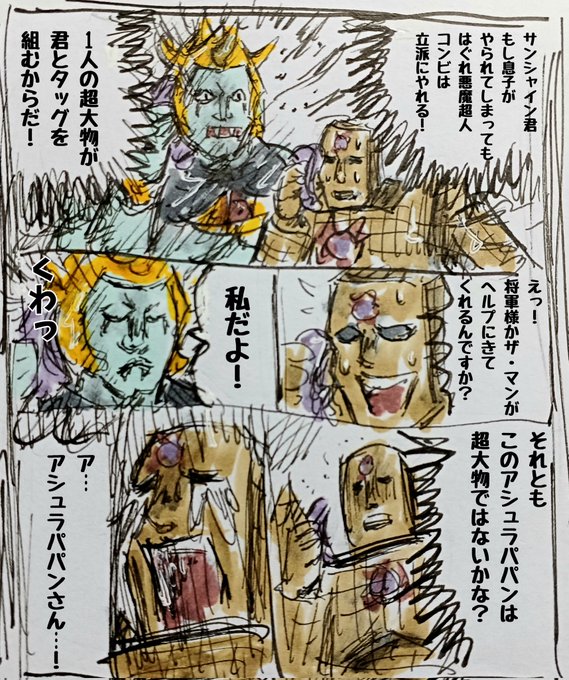 サンシャイン君
もし息子が
やられてしまっても
はぐれ悪魔超人
コンビは
立派にやれる！
１人の超大物が
君とタッグを
組むからだ！
えっ！
将軍様かザ・マンが
ヘルプにきて
くれるんですか？
私だよ！
くわっ
それとも
このアシュラパパンは
超大物ではないかな？
ア…
アシュラパパンさん…！